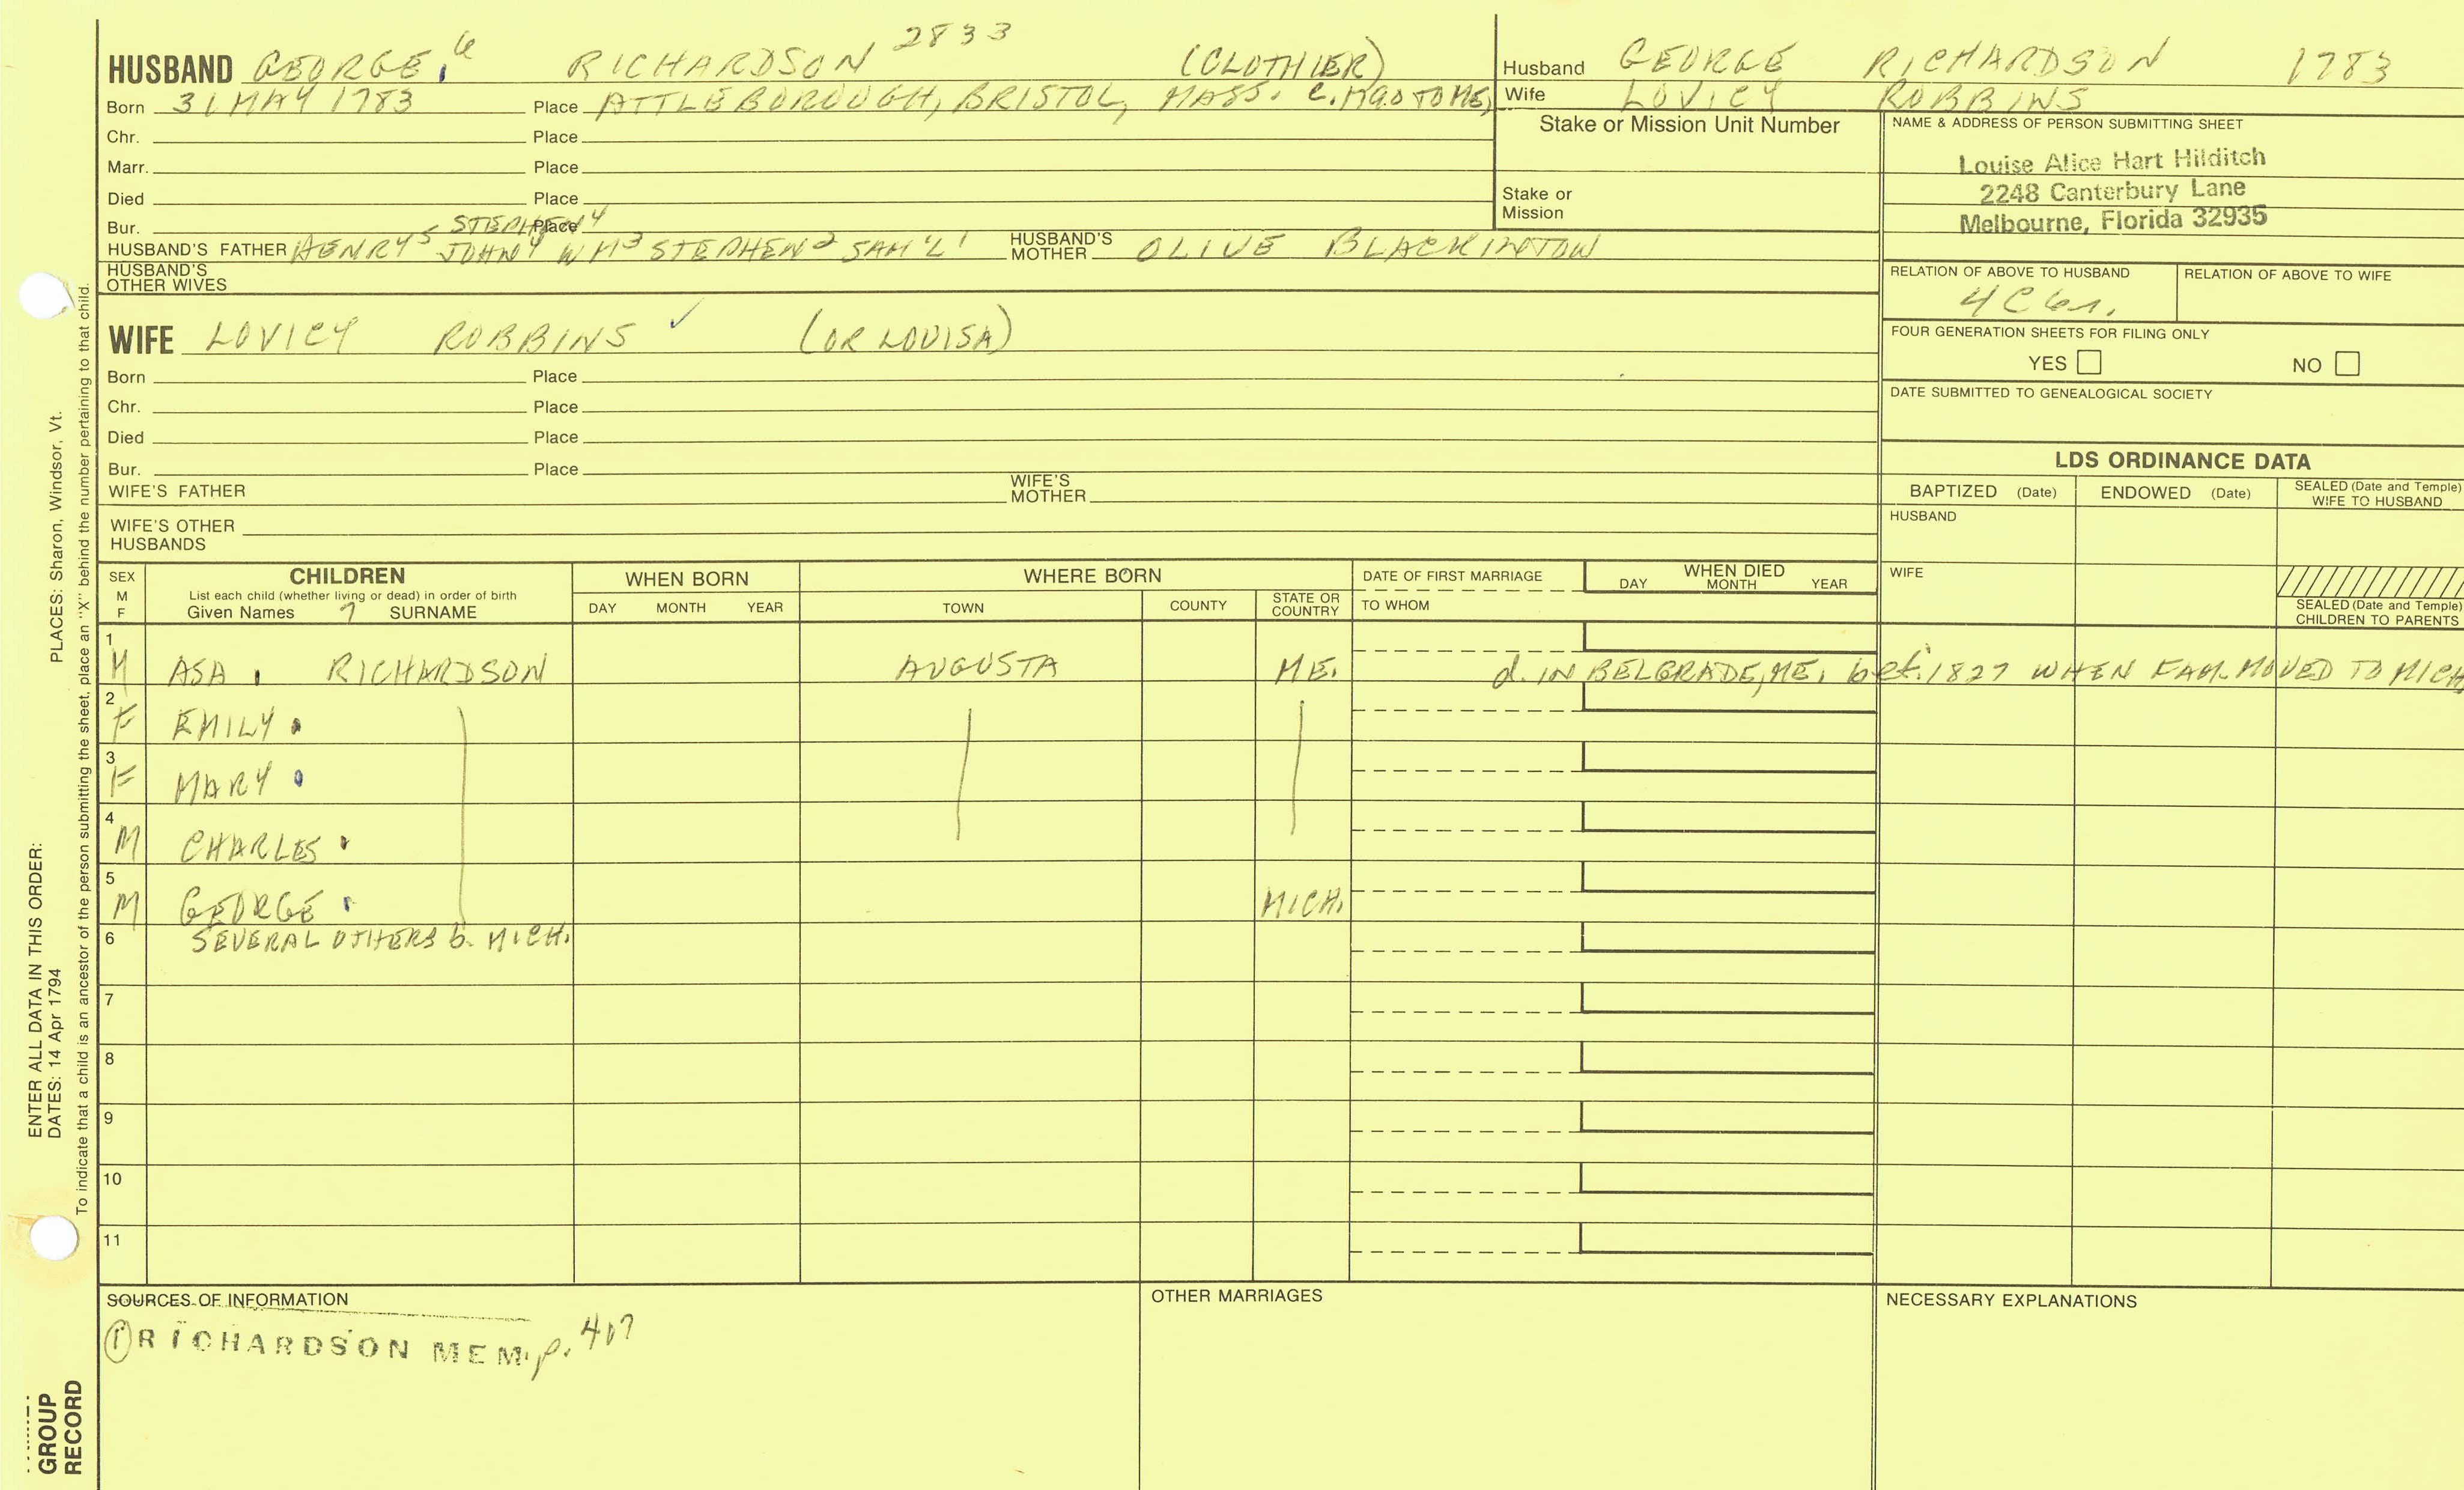 HUSBAND GEORGE 6 RICHARDSON 2833 (CLOTHIER)
Born 31 MAY 1783 Place ATTLEBOROUGH, BRISTOL, MASS. c. 1790 TO ME,
Chr. Place
Marr. Place
Died Place
Bur. Place
STEPHEN 4
HUSBAND'S FATHER HENRY 5 JOHN 4 WM 3 STEPHEN 2 SAM'L 1 HUSBAND'S MOTHER OLIVE BLACKINTON
HUSBAND'S OTHER WIVES
Husband GEORGE RICHARDSON 1783
Wife LOVICY ROBBINS
Stake or Mission Unit Number
Stake or Mission
NAME & ADDRESS OF PERSON SUBMITTING SHEET
Louise Alice Hart Hilditch
2248 Canterbury Lane
Melbourne, Florida 32935
RELATION OF ABOVE TO HUSBAND RELATION OF ABOVE TO WIFE
4C 6r.
FOUR GENERATION SHEETS FOR FILING ONLY
YES NO
DATE SUBMITTED TO GENEALOGICAL SOCIETY
WIFE LOVICY ROBBINS ✓ (OR LOUISA)
Born Place
Chr. Place
Died Place
Bur. Place
WIFE'S FATHER WIFE'S MOTHER
WIFE'S OTHER HUSBANDS
LDS ORDINANCE DATA
BAPTIZED (Date) ENDOWED (Date) SEALED (Date and Temple) WIFE TO HUSBAND
HUSBAND
WIFE
SEALED (Date and Temple) CHILDREN TO PARENTS
SEX M F
CHILDREN
List each child (whether living or dead) in order of birth
Given Names 7 SURNAME
WHEN BORN
DAY MONTH YEAR
WHERE BORN
TOWN COUNTY STATE OR COUNTRY
DATE OF FIRST MARRIAGE
TO WHOM
WHEN DIED
DAY MONTH YEAR
1 M ASA RICHARDSON AUGUSTA ME. d. IN BELGRADE, ME. bef. 1827 WHEN FAM. MOVED TO MICH
2 F EMILY
3 F MARY
4 M CHARLES
5 M GEORGE MICH.
6 SEVERAL OTHERS b. MICH.
7
8
9
10
11
SOURCES OF INFORMATION
① RICHARDSON MEM. p. 407
OTHER MARRIAGES
NECESSARY EXPLANATIONS
ENTER ALL DATA IN THIS ORDER:
DATES: 14 Apr 1794 PLACES: Sharon, Windsor, Vt.
To indicate that a child is an ancestor of the person submitting the sheet, place an "X" behind the number pertaining to that child.
GROUP
RECORD